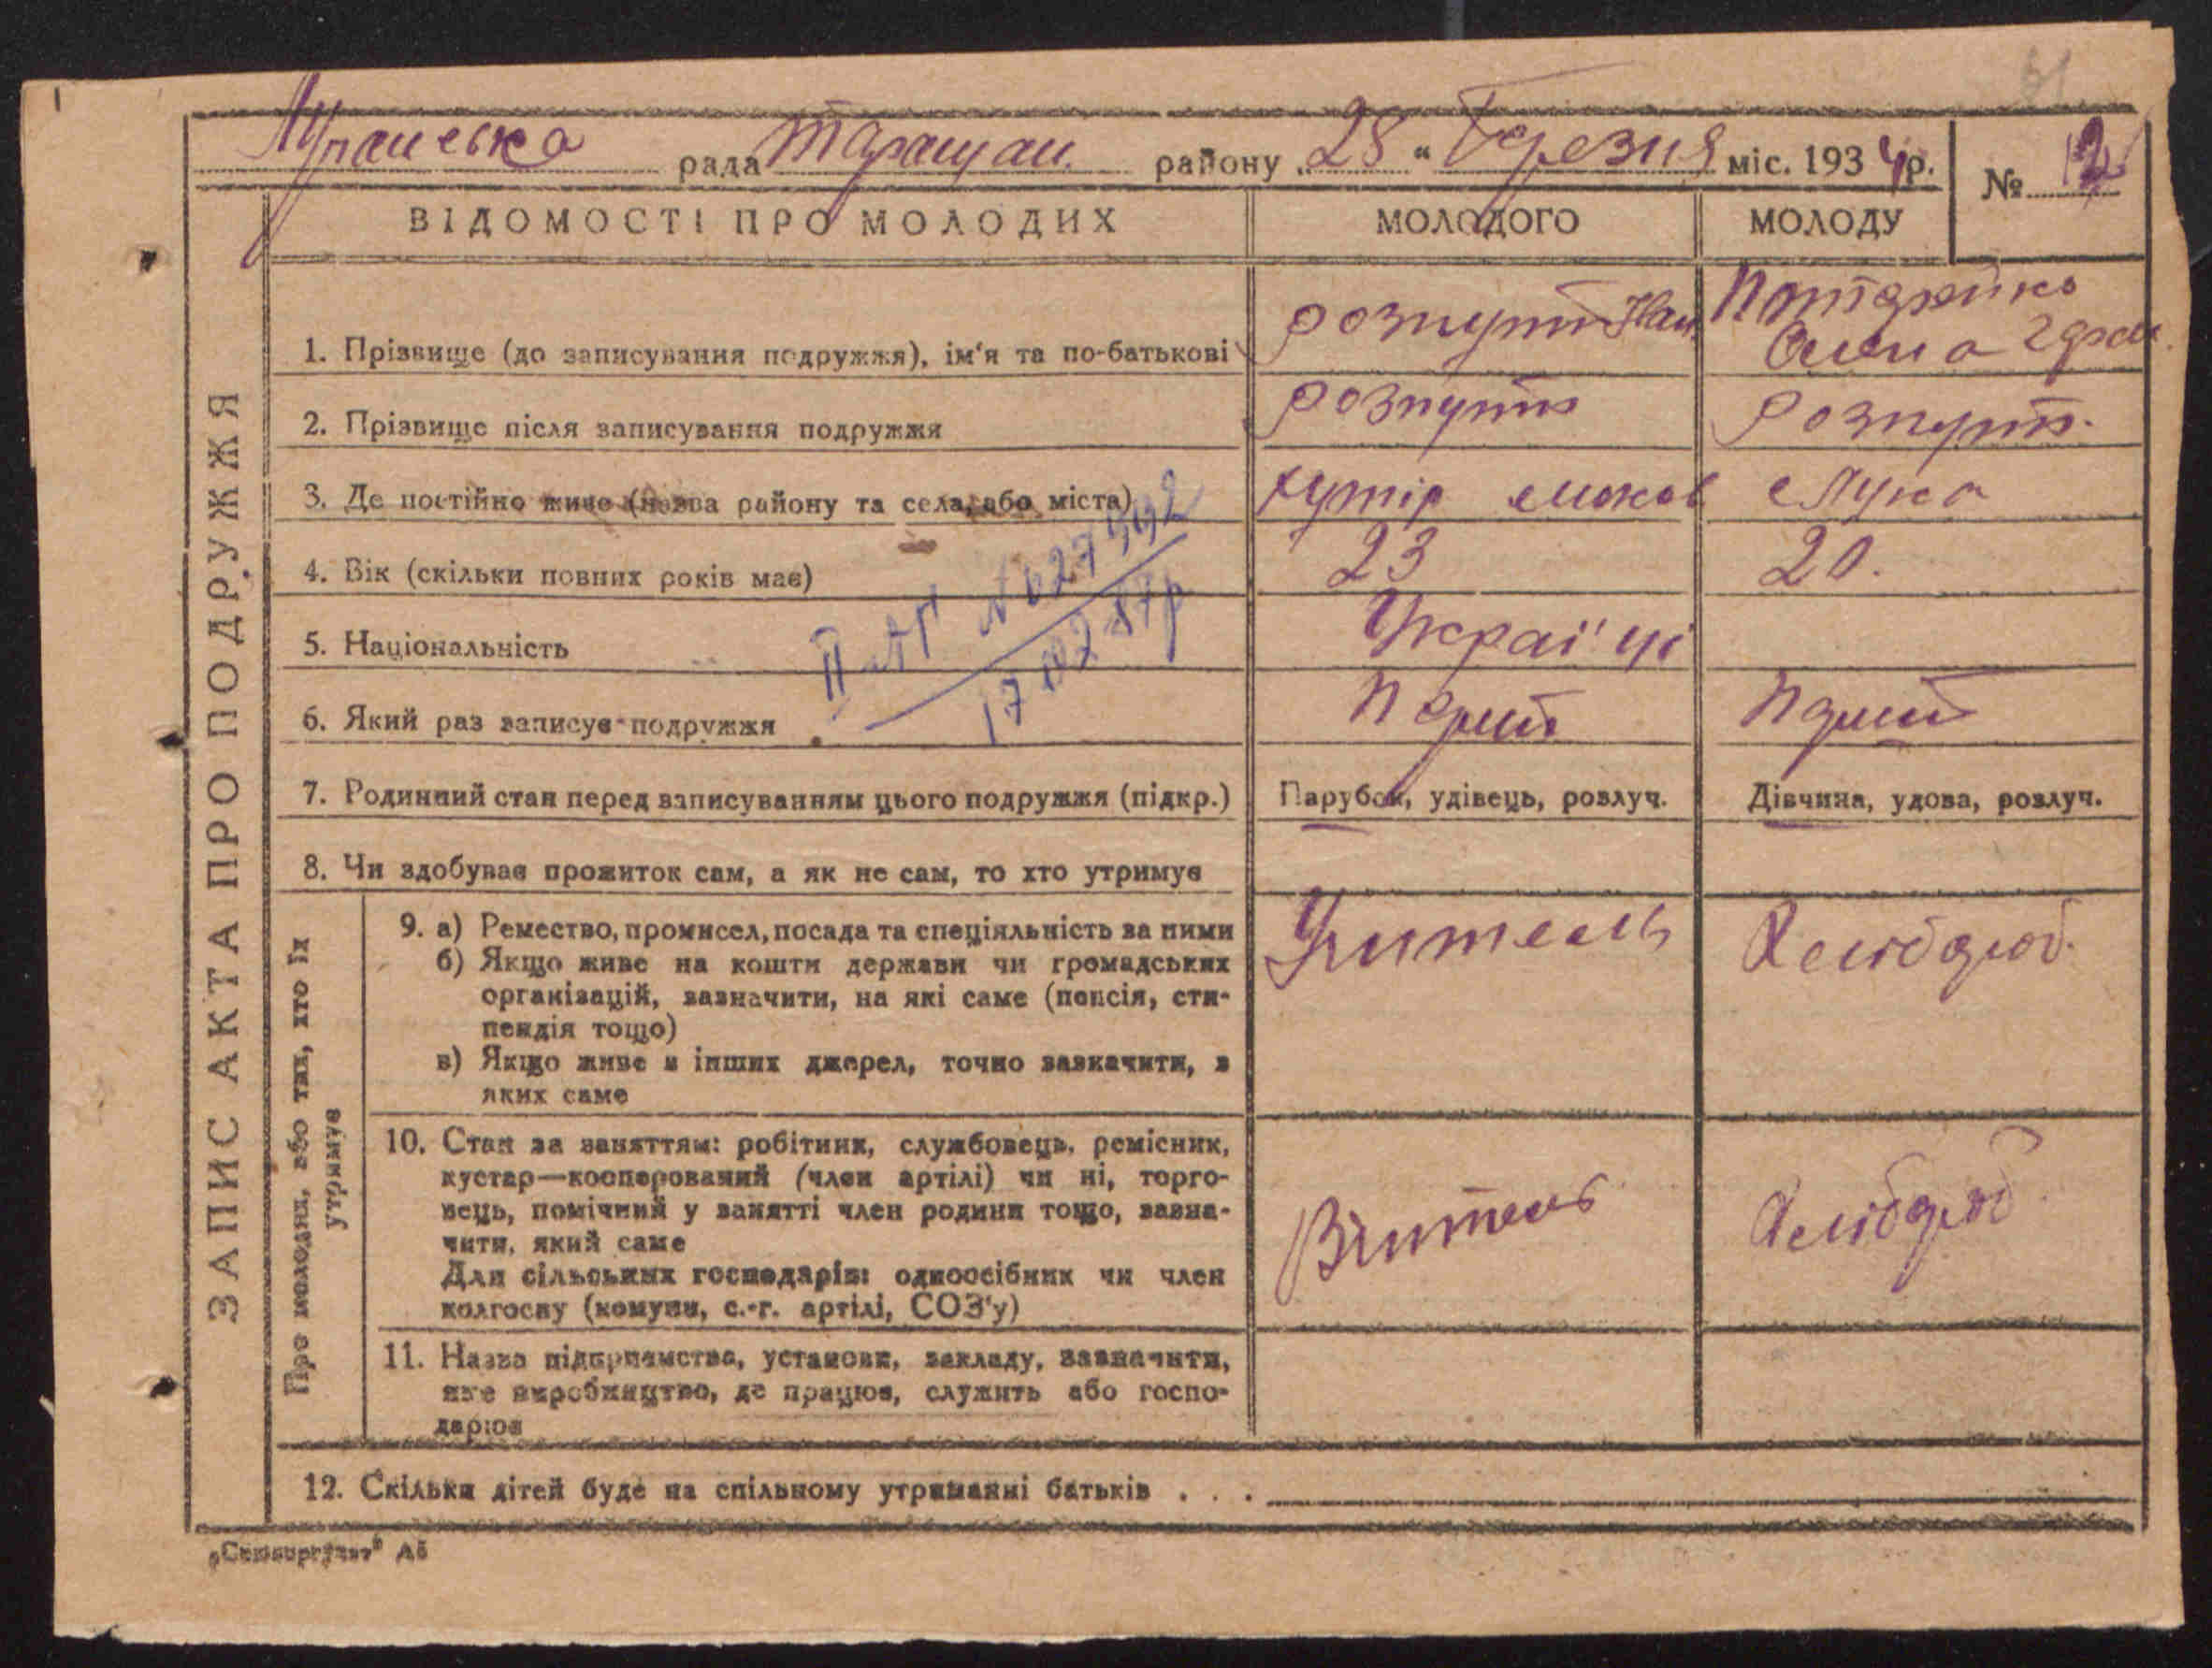 рада Таращан. району „28“ Березня міс. 1934 р. № 12
ВІДОМОСТІ ПРО МОЛОДИХ МОЛОДОГО МОЛОДУ
ЗАПИС АКТА ПРО ПОДРУЖЖЯ
1. Прізвище (до записування подружжя), ім'я та по-батькові
2. Прізвище після записування подружжя
3. Де постійно живе (назва району та села, або міста) хутір с Лука
4. Вік (скільки повних років має) 23 20.
5. Національність Украї'ці
6. Який раз записує подружжя Перший Перший
7. Родинний стан перед записуванням цього подружжя (підкр.) Парубок, удівець, розлуч. Дівчина, удова, розлуч.
8. Чи здобуває прожиток сам, а як не сам, то хто утримує
Про молодих, або тих, хто їх
утримує
9. а) Ремество, промисел, посада та спеціяльність за ними Учитель Хлібороб.
б) Якщо живе на кошти держави чи громадських
організацій, зазначити, на які саме (пенсія, сти-
пендія тощо)
в) Якщо живе з інших джерел, точно зазначити, з
яких саме
10. Стан за заняттям: робітник, службовець, ремісник,
кустар—кооперований (член артілі) чи ні, торго-
вець, помічний у занятті член родини тощо, зазна- Вчитель Хлібороб
чити, який саме
Для сільських господарів: одноосібник чи член
колгоспу (комуни, с.-г. артілі, СОЗ'у)
11. Назва підприємства, установи, закладу, зазначити,
яке виробництво, де працює, служить або госпо-
дарює
12. Скільки дітей буде на спільному утриманні батьків . . .